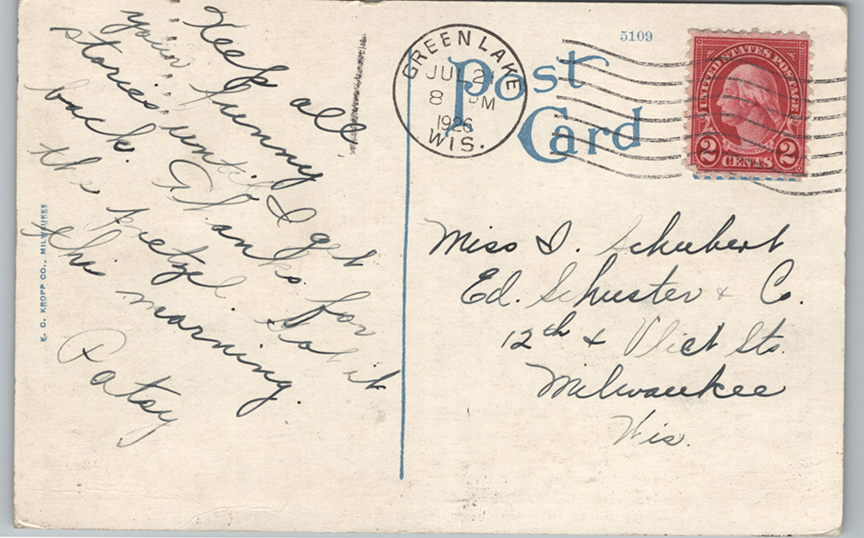 Keep all
your funny
stories until I get
back. Thanks for
the pretzel. Got it
this morning.
Patsy
E. C. KROPP CO., MILWAUKEE
GREEN LAKE
JUL 21
8 PM
1926
WIS.
5109
Post
Card
UNITED STATES POSTAGE
2 CENTS 2
Miss I. Schubert
Ed. Schuster & Co.
12th & Vliet Sts.
Milwaukee
Wis.